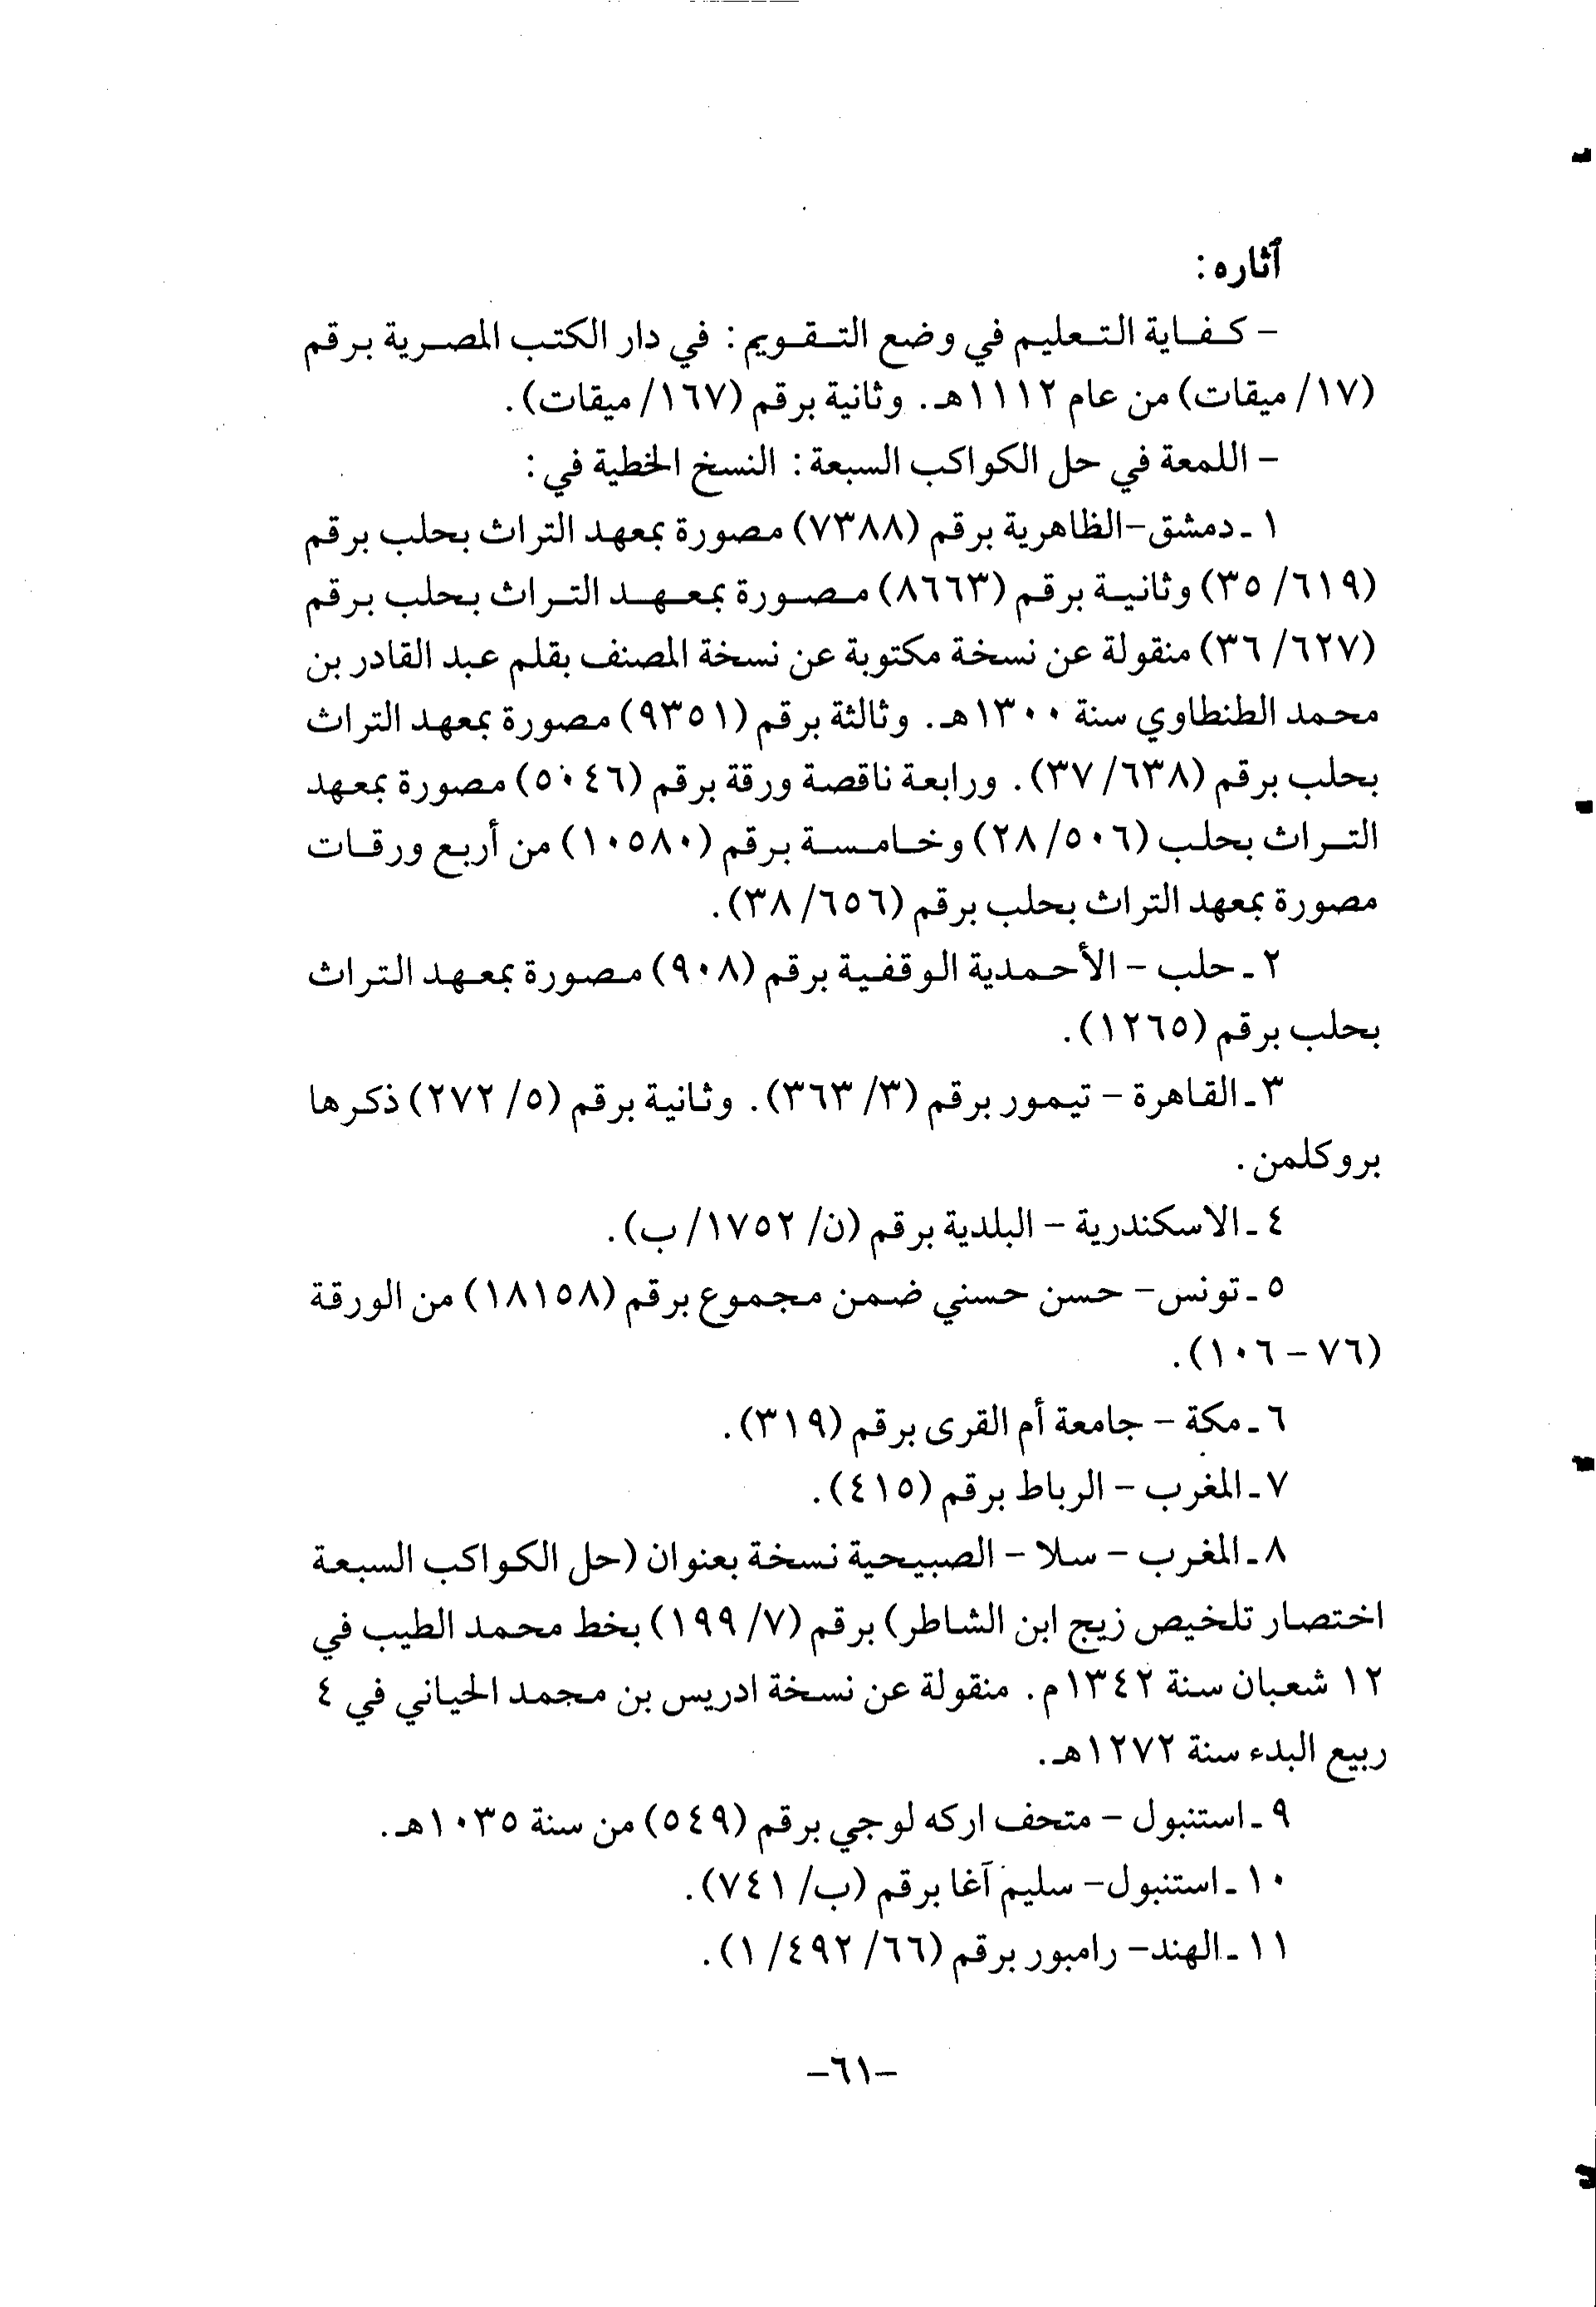 آثاره:
- كفاية التعليم في وضع التقويم: في دار الكتب المصرية برقم
(١٧/ ميقات) من عام ١١١٢هـ. وثانية برقم (١٦٧/ ميقات).
- اللمعة في حل الكواكب السبعة: النسخ الخطية في:
١ ـ دمشق-الظاهرية برقم (٧٣٨٨) مصورة بمعهد التراث بحلب برقم
(٦١٩/ ٣٥) وثانية برقم (٨٦٦٣) مصورة بمعهد التراث بحلب برقم
(٦٢٧/ ٣٦) منقولة عن نسخة مكتوبة عن نسخة المصنف بقلم عبد القادر بن
محمد الطنطاوي سنة ١٣٠٠هـ. وثالثة برقم (٩٣٥١) مصورة بمعهد التراث
بحلب برقم (٦٣٨/ ٣٧). ورابعة ناقصة ورقة برقم (٥٠٤٦) مصورة بمعهد
التراث بحلب (٥٠٦/ ٢٨) وخامسة برقم (١٠٥٨٠) من أربع ورقات
مصورة بمعهد التراث بحلب برقم (٦٥٦/ ٣٨).
٢ ـ حلب - الأحمدية الوقفية برقم (٩٠٨) مصورة بمعهد التراث
بحلب برقم (١٢٦٥).
٣ ـ القاهرة - تيمور برقم (٣/ ٣٦٣). وثانية برقم (٥/ ٢٧٢) ذكرها
بروكلمن.
٤ ـ الاسكندرية - البلدية برقم (ن/ ١٧٥٢/ ب).
٥ ـ تونس- حسن حسني ضمن مجموع برقم (١٨١٥٨) من الورقة
(٧٦ - ١٠٦).
٦ ـ مكة - جامعة أم القرى برقم (٣١٩).
٧ ـ المغرب - الرباط برقم (٤١٥).
٨ ـ المغرب - سلا - الصبيحية نسخة بعنوان (حل الكواكب السبعة
اختصار تلخيص زيج ابن الشاطر) برقم (٧/ ١٩٩) بخط محمد الطيب في
١٢ شعبان سنة ١٣٤٢م. منقولة عن نسخة ادريس بن مجمد الحياني في ٤
ربيع البدء سنة ١٢٧٢هـ.
٩ ـ استنبول - متحف اركه لوجي برقم (٥٤٩) من سنة ١٠٣٥هـ.
١٠ ـ استنبول- سليم آغا برقم (ب/ ٧٤١).
١١ ـ الهند- رامبور برقم (٦٦/ ٤٩٢/ ١).
-٦١-